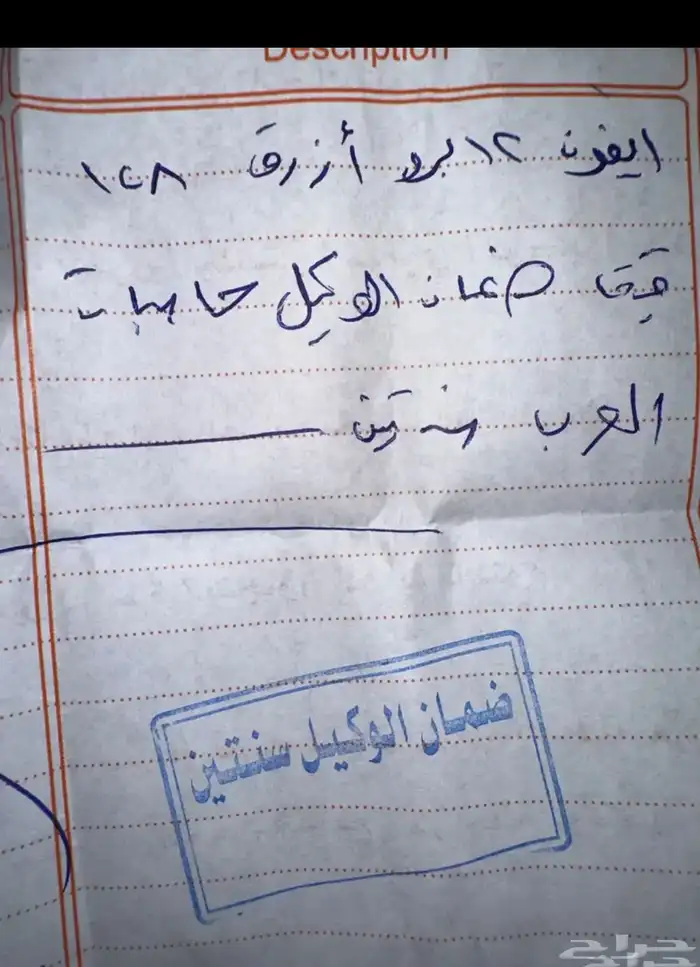 Description
ايفون ١٢ برو أزرق ١٢٨
قيقا ضمان الوكيل حاسبات
العرب سنتين
ضمان الوكيل سنتين
حراج